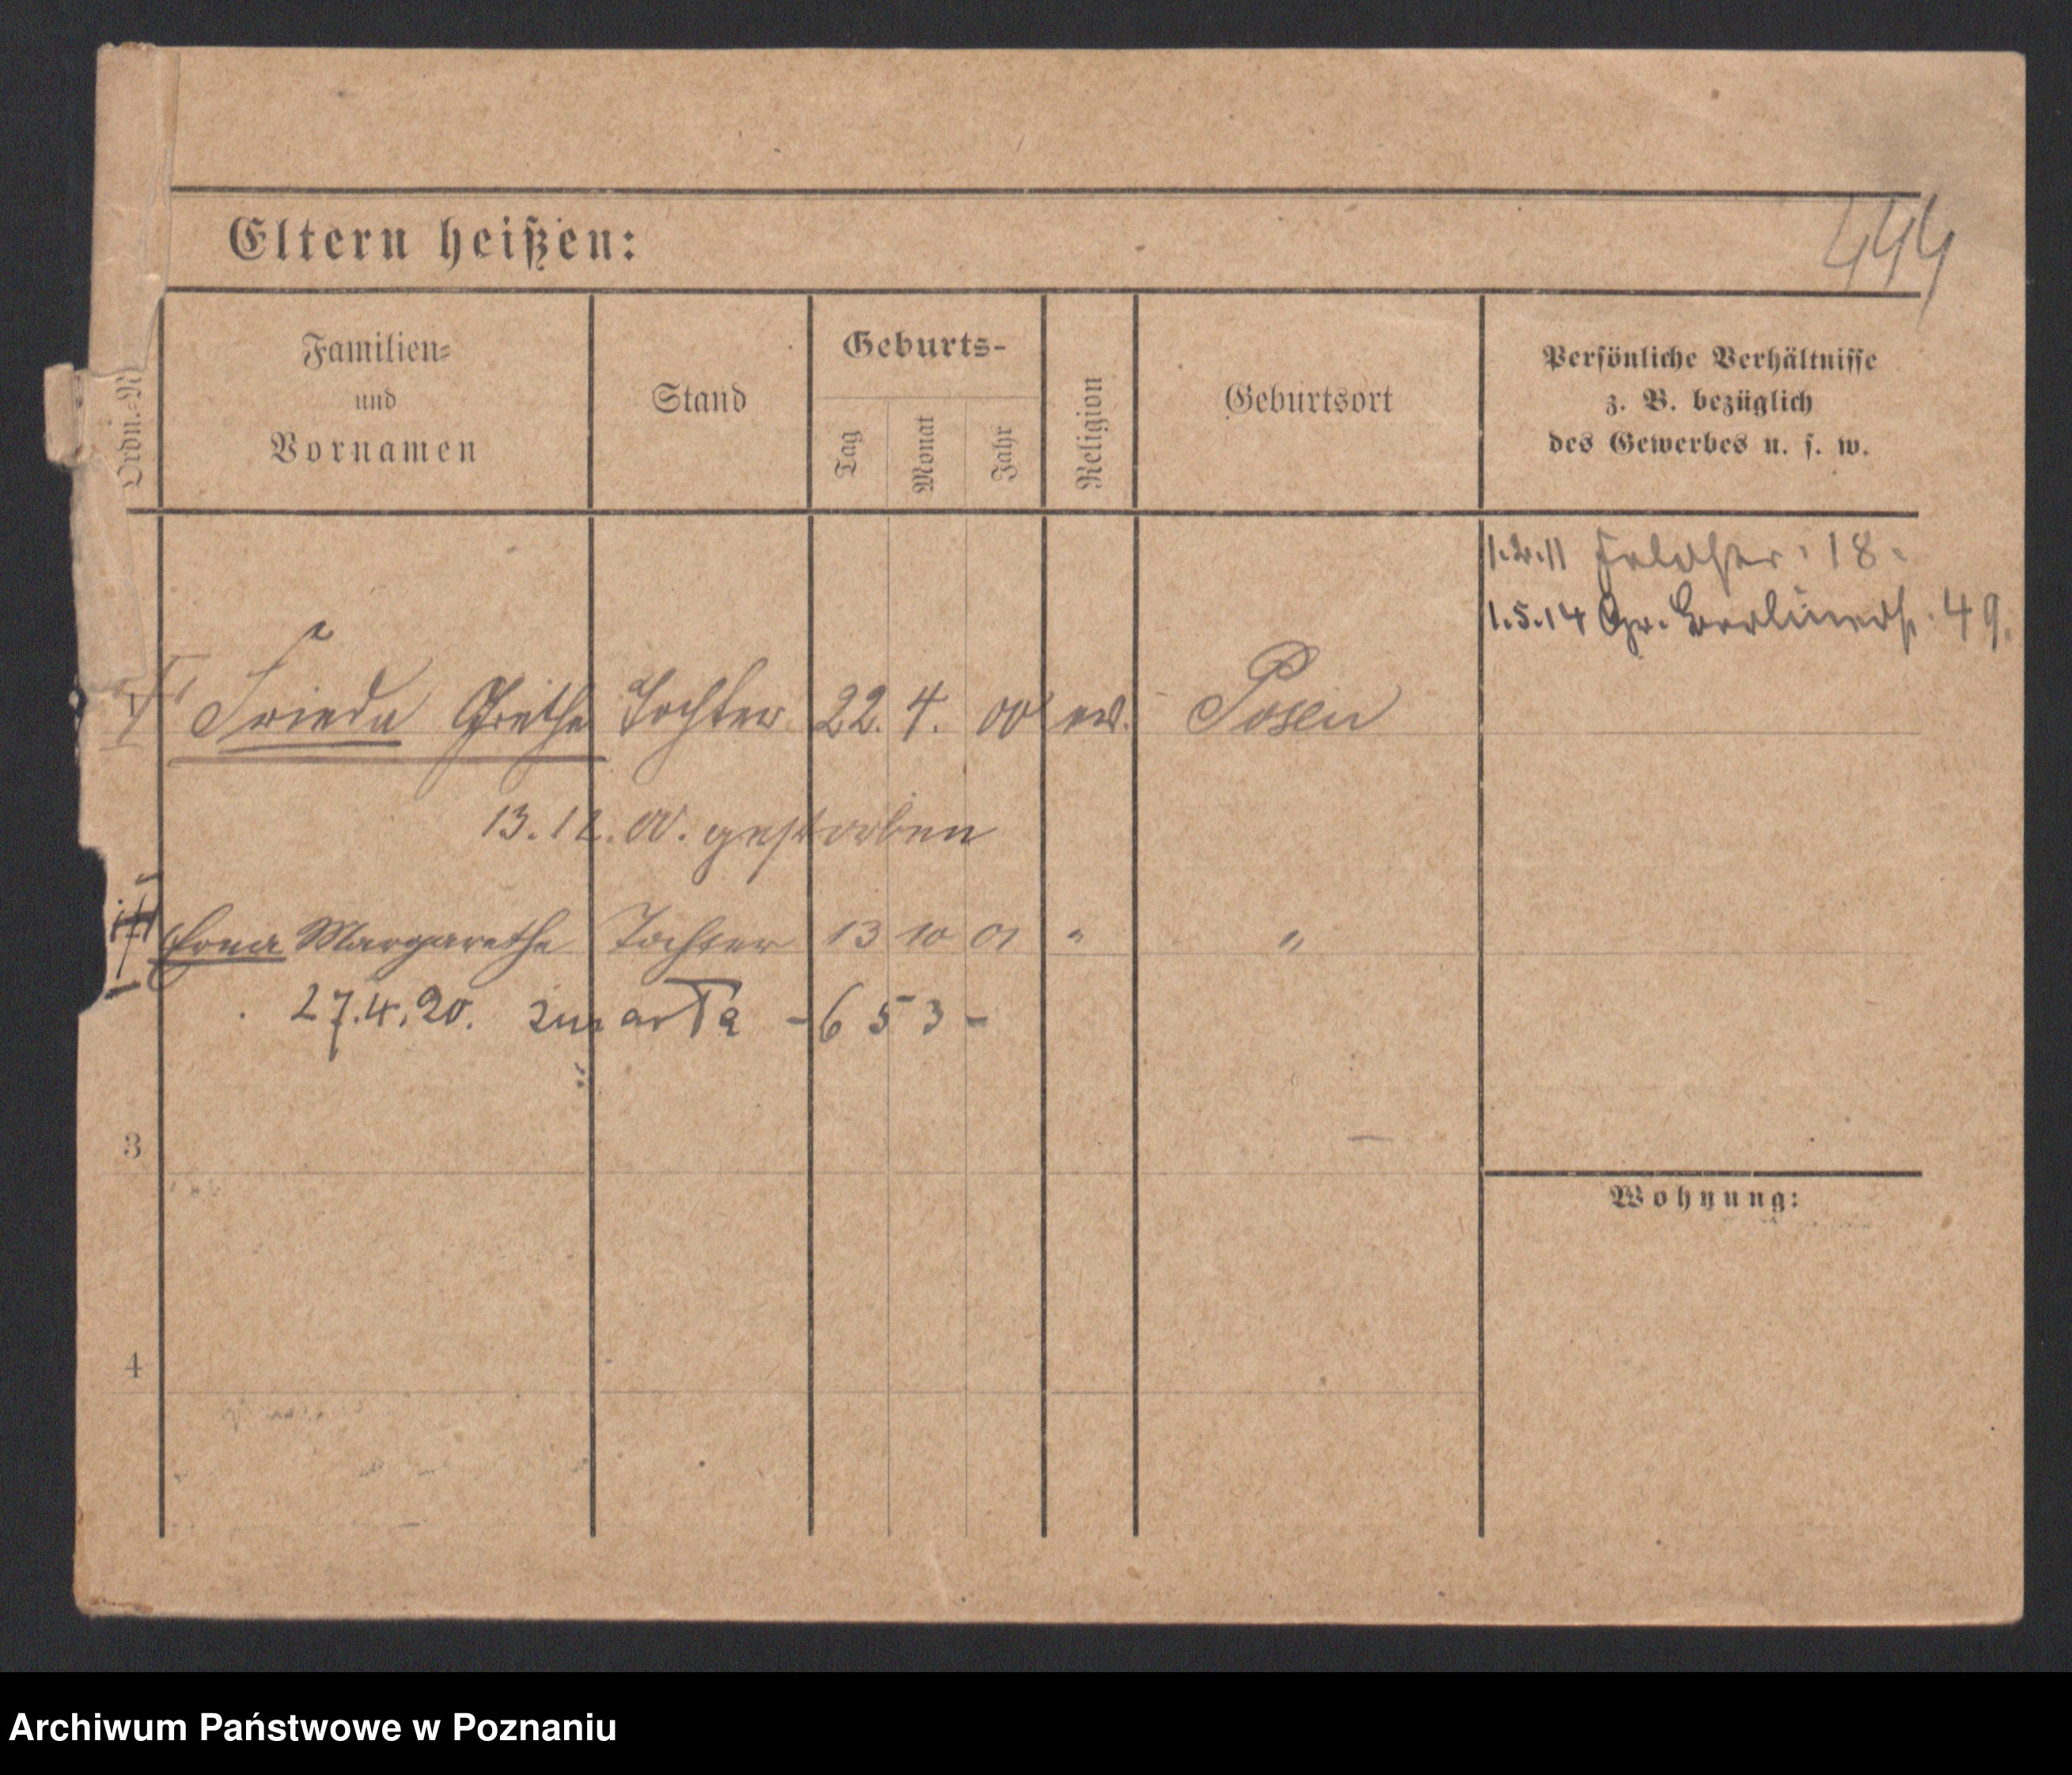 Eltern heißen:
444
Ordn.=N
Familien=
und
Vornamen
Stand
Geburts-
Tag
Monat
Jahr
Religion
Geburtsort
Persönliche Verhältnisse
z. B. bezüglich
des Gewerbes u. s. w.
1.2.11 Feldstr. 18.
1.5.14 Gr. Berlinerst. 49.
1 Frieda Grethe Tochter 22. 4. 00 ev. Posen
13.12.00. gestorben
Erna Margarethe Tochter 13 10 01 " "
27.4.20. -653-
3
Wohnung:
4
Archiwum Państwowe w Poznaniu